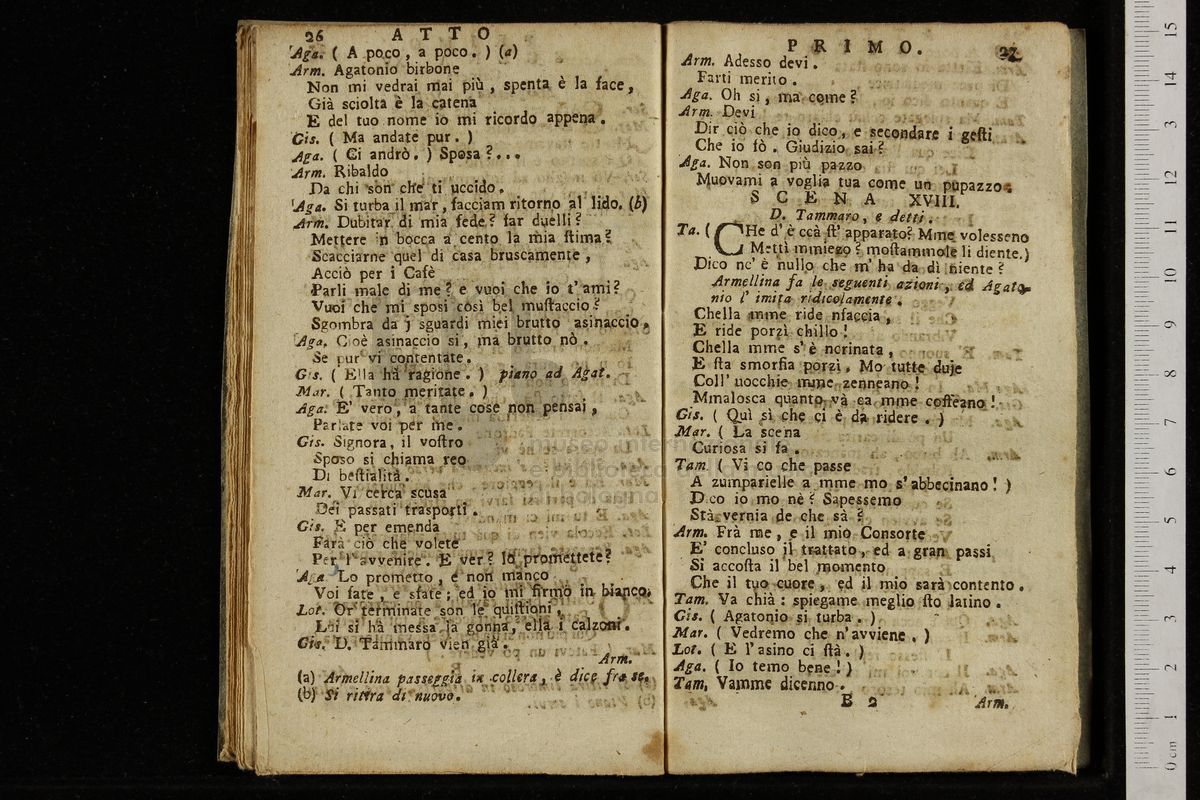 26 ATTO
Aga. ( A poco, a poco. ) (a)
Arm. Agatonio birbone
Non mi vedrai mai più, spenta è la face,
Già sciolta è la catena
E del tuo nome io mi ricordo appena.
Gis. ( Ma andate pur. )
Aga. ( Ci andrò. ) Sposa?...
Arm. Ribaldo
Da chi son che ti uccido.
Aga. Si turba il mar, facciam ritorno al lido. (b)
Arm. Dubitar di mia fede? far duelli?
Mettere in bocca a cento la mia ſtima?
Scacciarne quel di casa bruscamente,
Acciò per i Cafè
Parli male di me? e vuoi che io t' ami?
Vuoi che mi sposi così bel muſtaccio?
Sgombra da j sguardi miei brutto asinaccio.
Aga. Cioè asinaccio si, ma brutto nò.
Se pur vi contentate.
Gis. ( Ella hà ragione. ) piano ad Agat.
Mar. ( Tanto meritate. )
Aga. E' vero, a tante cose non pensai,
Parlate voi per me.
Gis. Signora, il voſtro
Sposo si chiama reo
Di beſtialità.
Mar. Vi cerca scusa
Dei passati trasporti.
Gis. E per emenda
Farà ciò che volete
Per l' avvenire. E ver? lo promettete?
Aga Lo prometto, e non manco
Voi fate, e sfate; ed io mi firmo in bianco.
Lot. Or terminate son le quiſtioni,
Lui si hà messa la gonna, ella i calzoni.
Gis. D. Tammaro vien già.
Arm.
(a) Armellina passeggia in collera, è dice fra se.
(b) Si ritira di nuovo.
PRIMO. 27
Arm. Adesso devi.
Farti merito.
Aga. Oh si, ma come?
Arm. Devi
Dir ciò che io dico, e secondare i geſti
Che io fò. Giudizio sai?
Aga. Non son più pazzo
Muovami a voglia tua come un pupazzo.
SCENA XVIII.
D. Tammaro, e detti.
Ta. ( CHe d' è ccà ſt' apparato? Mme volesseno
Mettì mmiezo? moſtammole li diente.)
Dico nc' è nullo che m' ha da dì niente?
Armellina fa le seguenti azioni, ed Agato-
nio l' imita ridicolamente.
Chella mme ride nfaccia,
E ride porzì chillo!
Chella mme s' è ncrinata,
E ſta smorfia porzì. Mo tutte duje
Coll' uocchie mme zenneano!
Mmalosca quanto và ca mme coffeano!
Gis. ( Quì sì che ci è da ridere. )
Mar. ( La scena
Curiosa si fa.
Tam ( Vi co che passe
A zumparielle a mme mo s' abbecinano! )
Dico io mo nè? Sapessemo
Stà vernia de che sà?
Arm. Frà me, e il mio Consorte
E' concluso il trattato, ed a gran passi
Si accoſta il bel momento
Che il tuo cuore, ed il mio sarà contento.
Tam. Va chià: spiegame meglio ſto latino.
Gis. ( Agatonio si turba. )
Mar. ( Vedremo che n' avviene. )
Lot. ( E l' asino ci ſtà. )
Aga. ( Io temo bene! )
Tam, Vamme dicenno.
B 2 Arm.